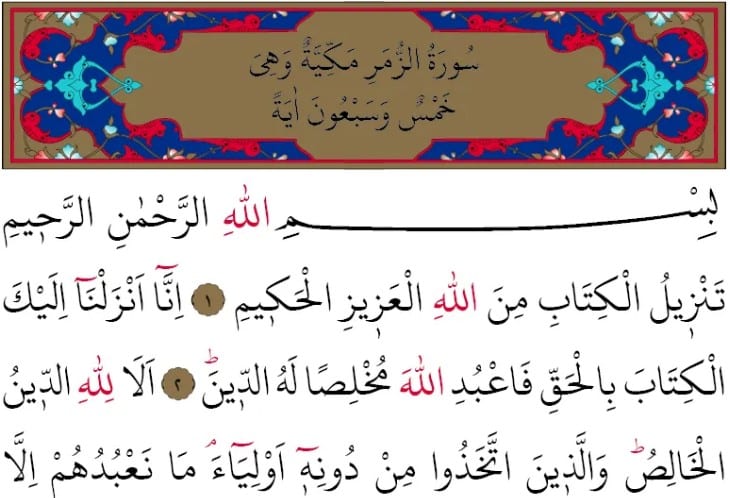 سُورَةُ الزُّمَرِ مَكِّيَّةٌ وَهِىَ
خَمْسٌ وَسَبْعُونَ اٰيَةً
بِسْمِ اللهِ الرَّحْمٰنِ الرَّح۪يمِ
تَنْز۪يلُ الْكِتَابِ مِنَ اللهِ الْعَز۪يزِ الْحَك۪يمِ ﴿١﴾ اِنَّٓا اَنْزَلْنَٓا اِلَيْكَ
الْكِتَابَ بِالْحَقِّ فَاعْبُدِ اللهَ مُخْلِصًا لَهُ الدّ۪ينَۜ ﴿٢﴾ اَلَا لِلهِ الدّ۪ينُ
الْخَالِصُۜ وَالَّذ۪ينَ اتَّخَذُوا مِنْ دُونِه۪ٓ اَوْلِيَٓاءَۢ مَا نَعْبُدُهُمْ اِلَّا